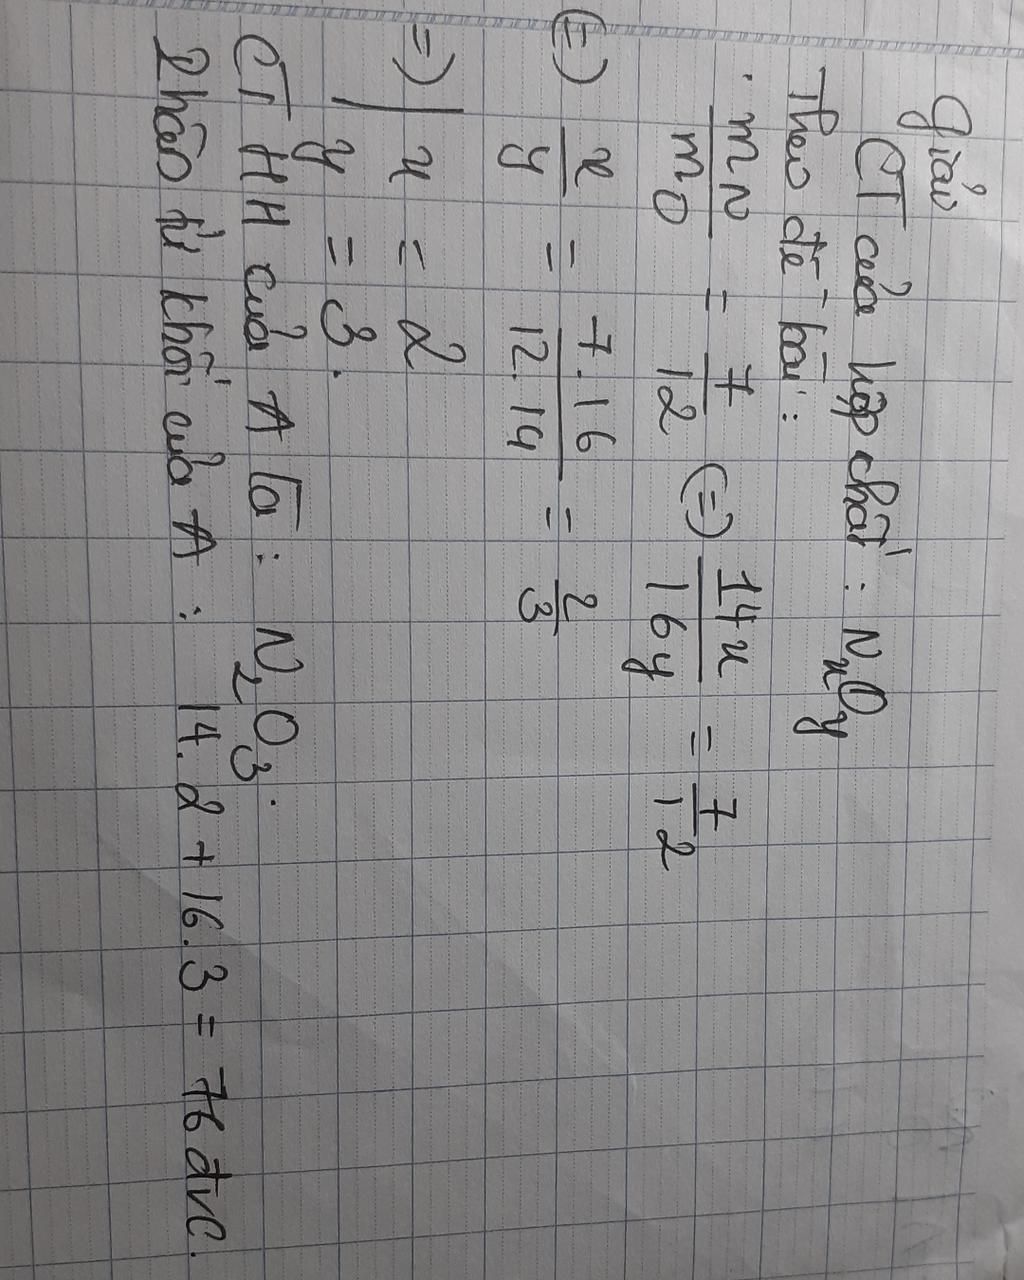 Giải
CT của hợp chất : NxOy
Theo đề bài :
. mN/mO = 7/12 (=) 14x/16y = 7/12
(=) x/y = 7.16/12.14 = 2/3
=) | x = 2
y = 3.
CTHH của A là : N2O3.
Phân tử khối của A : 14.2 + 16.3 = 76 đvC.